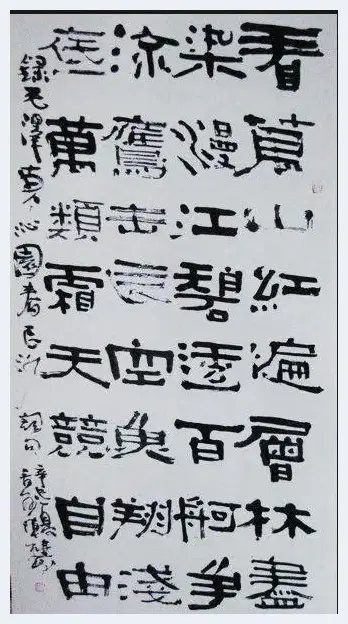 看萬山紅遍層林盡
染漫江碧透百舸爭
流鷹擊長空魚翔淺
底萬類霜天競自由
錄毛澤東沁園春長沙詞句